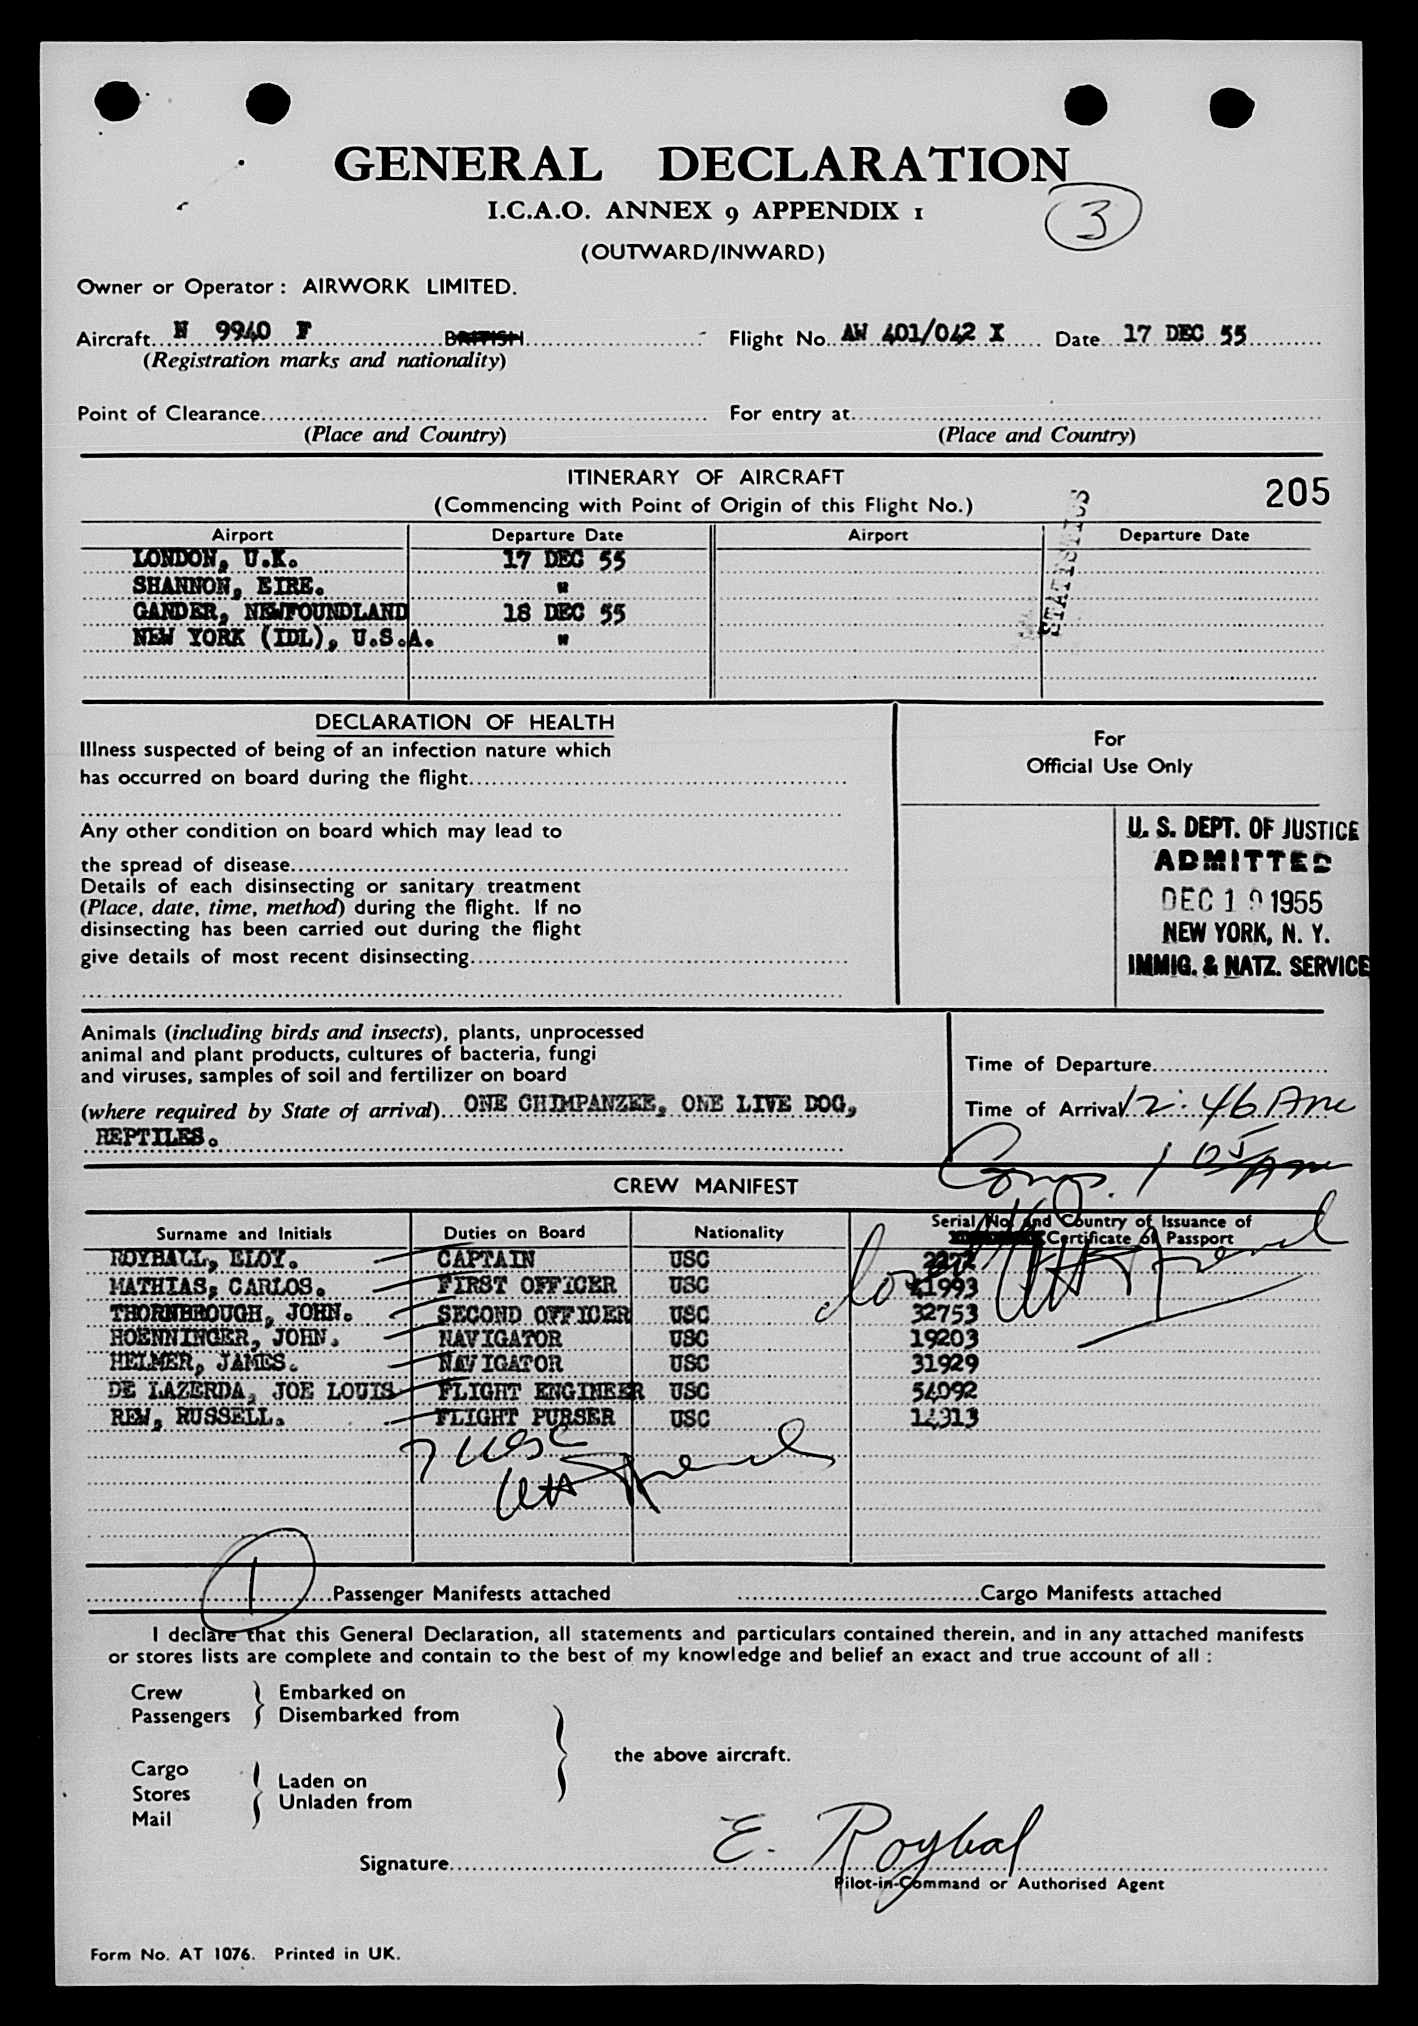 GENERAL DECLARATION
I.C.A.O. ANNEX 9 APPENDIX 1
3
(OUTWARD/INWARD)
Owner or Operator: AIRWORK LIMITED.
Aircraft N 9940 F BRITISH Flight No. AW 401/042 X Date 17 DEC 55
(Registration marks and nationality)
Point of Clearance For entry at
(Place and Country) (Place and Country)
ITINERARY OF AIRCRAFT
(Commencing with Point of Origin of this Flight No.)
205
STATISTICS
Airport Departure Date Airport Departure Date
LONDON, U.K. 17 DEC 55
SHANNON, EIRE. "
GANDER, NEWFOUNDLAND 18 DEC 55
NEW YORK (IDL), U.S.A. "
DECLARATION OF HEALTH
Illness suspected of being of an infection nature which
has occurred on board during the flight
Any other condition on board which may lead to
the spread of disease
Details of each disinsecting or sanitary treatment
(Place, date, time, method) during the flight. If no
disinsecting has been carried out during the flight
give details of most recent disinsecting
For
Official Use Only
U. S. DEPT. OF JUSTICE
ADMITTED
DEC 19 1955
NEW YORK, N. Y.
IMMIG. & NATZ. SERVICE
Animals (including birds and insects), plants, unprocessed
animal and plant products, cultures of bacteria, fungi
and viruses, samples of soil and fertilizer on board
(where required by State of arrival) ONE CHIMPANZEE, ONE LIVE DOG,
REPTILES.
Time of Departure
Time of Arrival 12:46 AM
Comp. 1 05 AM
CREW MANIFEST
Surname and Initials Duties on Board Nationality Serial No. and Country of Issuance of
Certificate or Passport
ROYBALL, ELOY. CAPTAIN USC
MATHIAS, CARLOS. FIRST OFFICER USC 41993
THORNBROUGH, JOHN. SECOND OFFICER USC 32753
HOENNINGER, JOHN. NAVIGATOR USC 19203
HELMER, JAMES. NAVIGATOR USC 31929
DE LAZERDA, JOE LOUIS FLIGHT ENGINEER USC 54092
REW, RUSSELL. FLIGHT PURSER USC 14313
7 USC
1
Passenger Manifests attached Cargo Manifests attached
I declare that this General Declaration, all statements and particulars contained therein, and in any attached manifests
or stores lists are complete and contain to the best of my knowledge and belief an exact and true account of all :
Crew Embarked on
Passengers Disembarked from
the above aircraft.
Cargo
Stores Laden on
Mail Unladen from
Signature E. Roybal
Pilot-in-Command or Authorised Agent
Form No. AT 1076. Printed in UK.